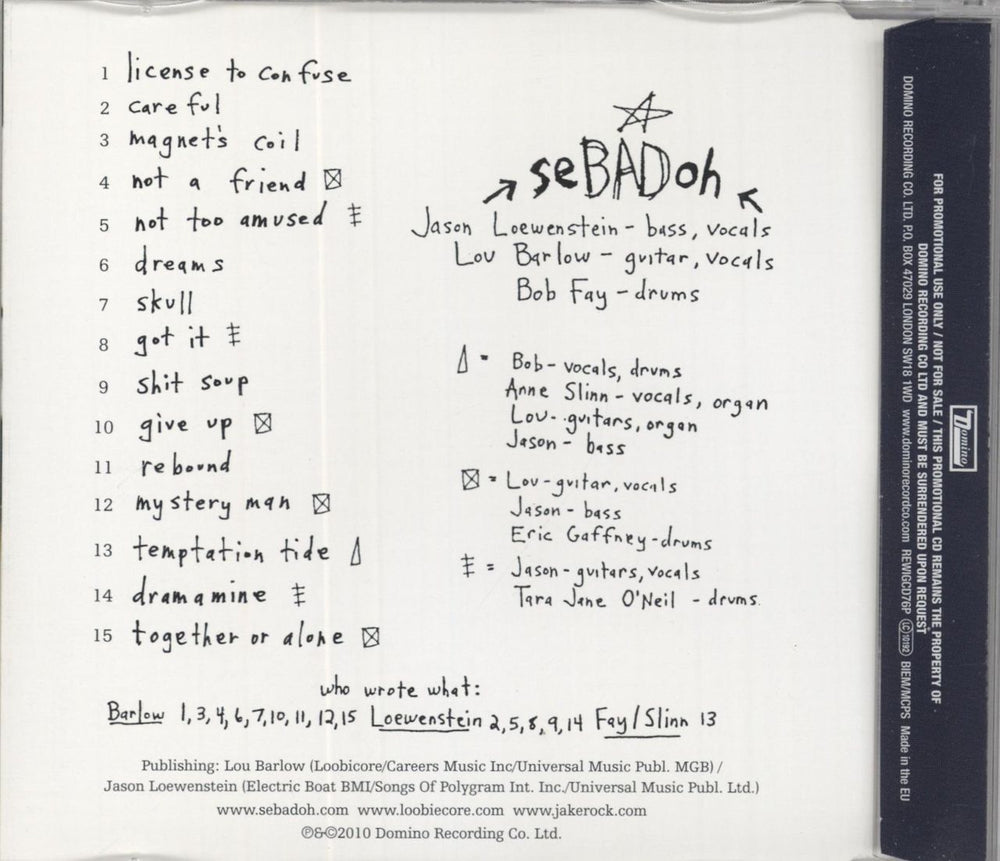 1 license to confuse
2 careful
3 magnet's coil
4 not a friend
5 not too amused
6 dreams
7 skull
8 got it
9 shit soup
10 give up
11 rebound
12 mystery man
13 temptation tide
14 dramamine
15 together or alone
seBADoh
Jason Loewenstein - bass, vocals
Lou Barlow - guitar, vocals
Bob Fay - drums
Δ = Bob - vocals, drums
Anne Slinn - vocals, organ
Lou - guitars, organ
Jason - bass
⊠ = Lou - guitar, vocals
Jason - bass
Eric Gaffney - drums
= Jason - guitars, vocals
Tara Jane O'Neil - drums.
who wrote what:
Barlow 1,3,4,6,7,10,11,12,15 Loewenstein 2,5,8,9,14 Fay/Slinn 13
Publishing: Lou Barlow (Loobicore/Careers Music Inc/Universal Music Publ. MGB) /
Jason Loewenstein (Electric Boat BMI/Songs Of Polygram Int. Inc./Universal Music Publ. Ltd.)
www.sebadoh.com www.loobiecore.com www.jakerock.com
℗&©2010 Domino Recording Co. Ltd.
Domino
FOR PROMOTIONAL USE ONLY / NOT FOR SALE / THIS PROMOTIONAL CD REMAINS THE PROPERTY OF
DOMINO RECORDING CO LTD AND MUST BE SURRENDERED UPON REQUEST
DOMINO RECORDING CO. LTD. P.O. BOX 47029 LONDON SW18 1WD www.dominorecordco.com REWIGCD76P LC10192 BIEM/MCPS Made in the EU